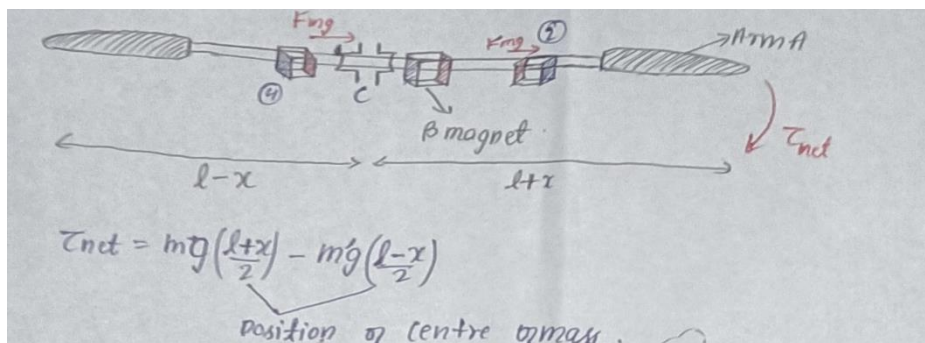 Fmg
Fmg
②
Arm A
④
C
B magnet
τnet
l-x
l+x
τnet = mg(l+x/2) - m'g(l-x/2)
Position of centre of mass.